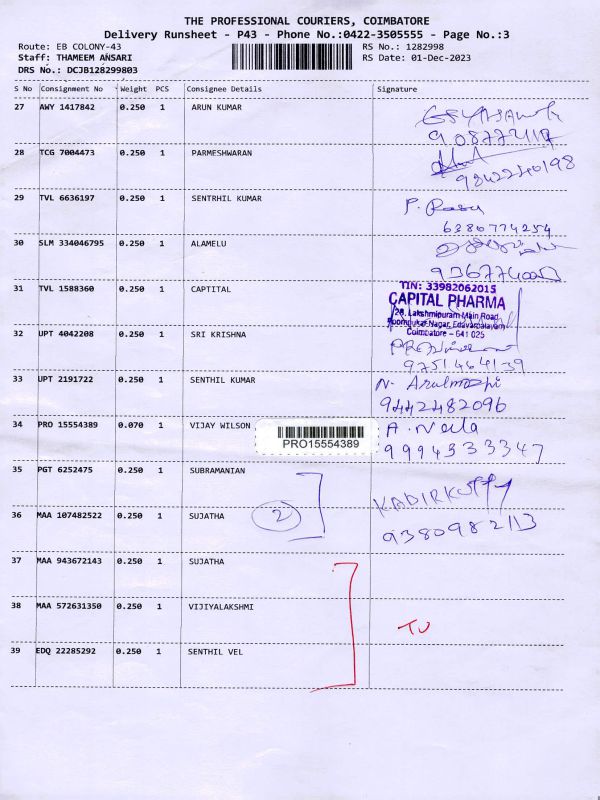 THE PROFESSIONAL COURIERS, COIMBATORE
Delivery Runsheet - P43 - Phone No.:0422-3505555 - Page No.:3
Route: EB COLONY-43 RS No.: 1282998
Staff: THAMEEM ANSARI RS Date: 01-Dec-2023
DRS No.: DCJB128299803
S No Consignment No Weight PCS Consignee Details Signature
27 AWY 1417842 0.250 1 ARUN KUMAR
28 TCG 7004473 0.250 1 PARMESHWARAN
9842240198
29 TVL 6636197 0.250 1 SENTRHIL KUMAR P. Rasu
6380774254
30 SLM 334046795 0.250 1 ALAMELU
31 TVL 1588360 0.250 1 CAPTITAL
TIN: 33982062015
CAPITAL PHARMA
28, Lakshmipuram Main Road,
Poompukar Nagar, Edayarpalayam
Coimbatore - 641 025
32 UPT 4042208 0.250 1 SRI KRISHNA
9751464139
33 UPT 2191722 0.250 1 SENTHIL KUMAR N.
9442482096
34 PRO 15554389 0.070 1 VIJAY WILSON A. Nala
PRO15554389
9994333347
35 PGT 6252475 0.250 1 SUBRAMANIAN
KADIRKUTTY
36 MAA 107482522 0.250 1 SUJATHA 2
9380982113
37 MAA 943672143 0.250 1 SUJATHA
38 MAA 572631350 0.250 1 VIJIYALAKSHMI
TU
39 EDQ 22285292 0.250 1 SENTHIL VEL